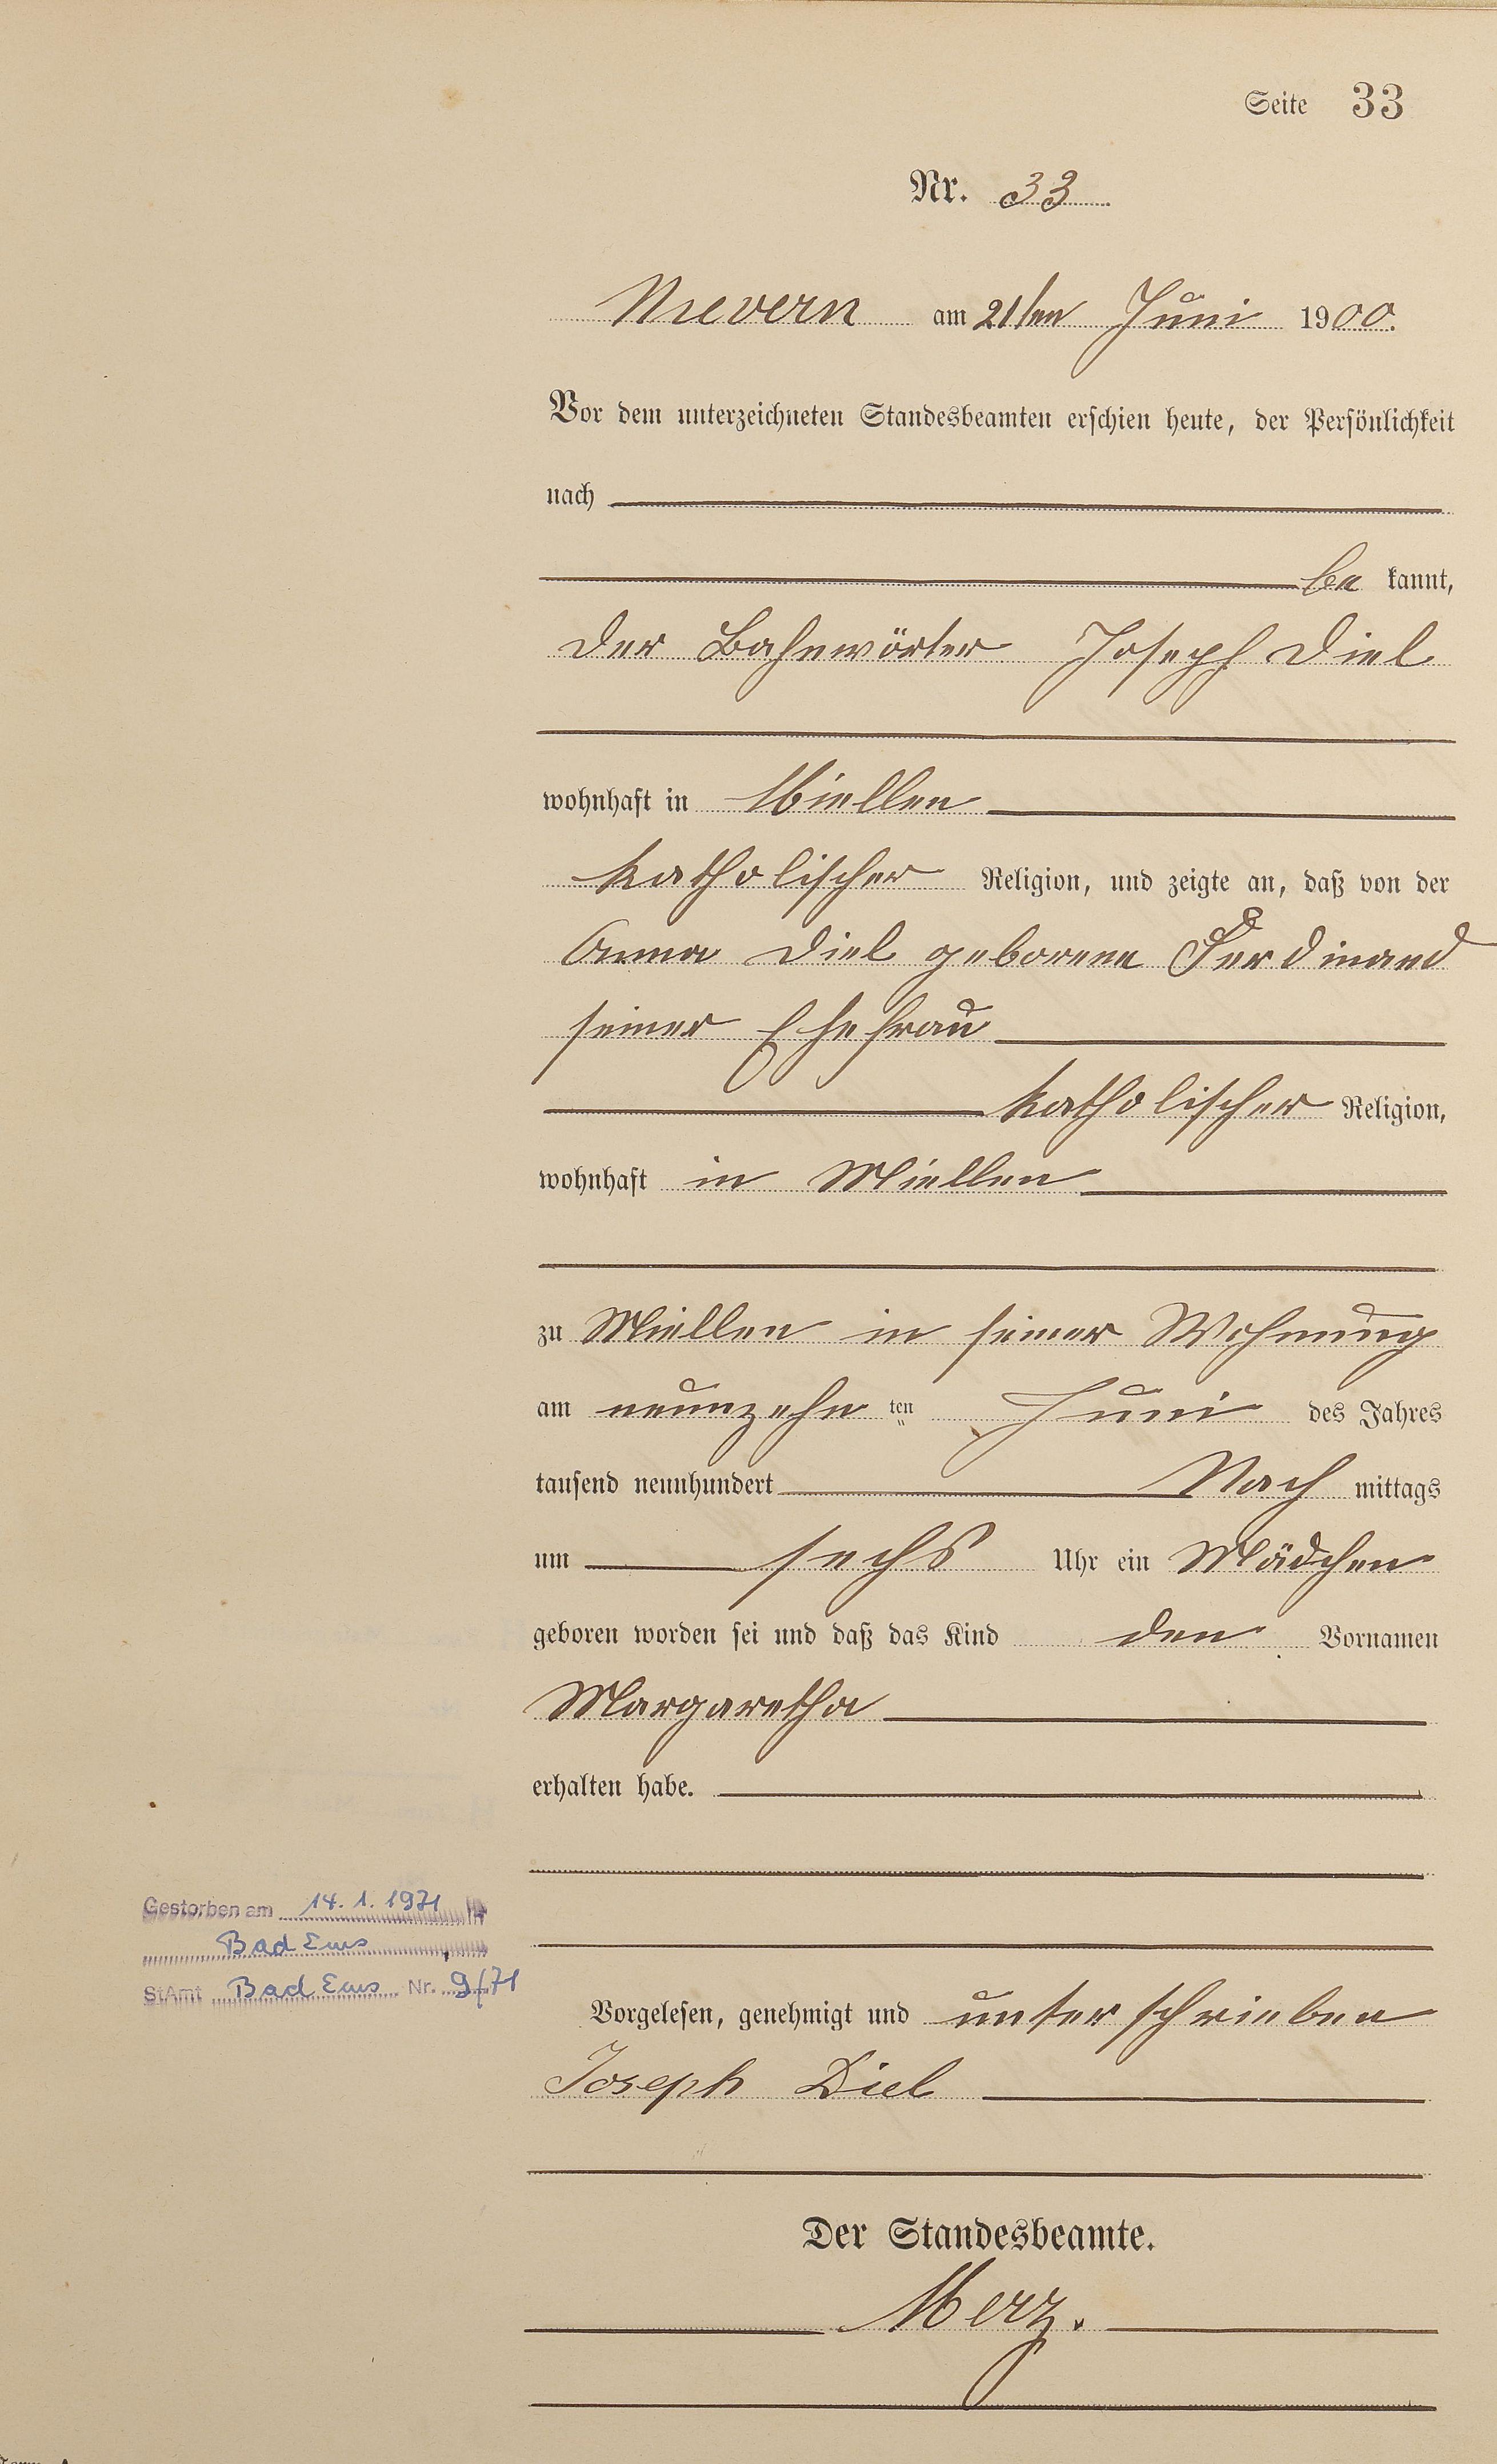 Seite 33
Nr. 33
Nievern am 21ten Juni 1900.
Vor dem unterzeichneten Standesbeamten erschien heute, der Persönlichkeit
nach
be kannt,
der Bahnwärter Joseph Diel
wohnhaft in Miellen
katholischer Religion, und zeigte an, daß von der
Anna Diel geborene Ferdinand
seiner Ehefrau
katholischer Religion,
wohnhaft in Miellen
zu Miellen in seiner Wohnung
am neunzehn ten Juni des Jahres
tausend neunhundert Nach mittags
um sechs Uhr ein Mädchen
geboren worden sei und daß das Kind den Vornamen
Margaretha
erhalten habe.
Gestorben am 14.1.1971
Bad Ems
StAmt Bad Ems Nr. 9/71
Vorgelesen, genehmigt und unterschrieben
Joseph Diel
Der Standesbeamte.
Merz.